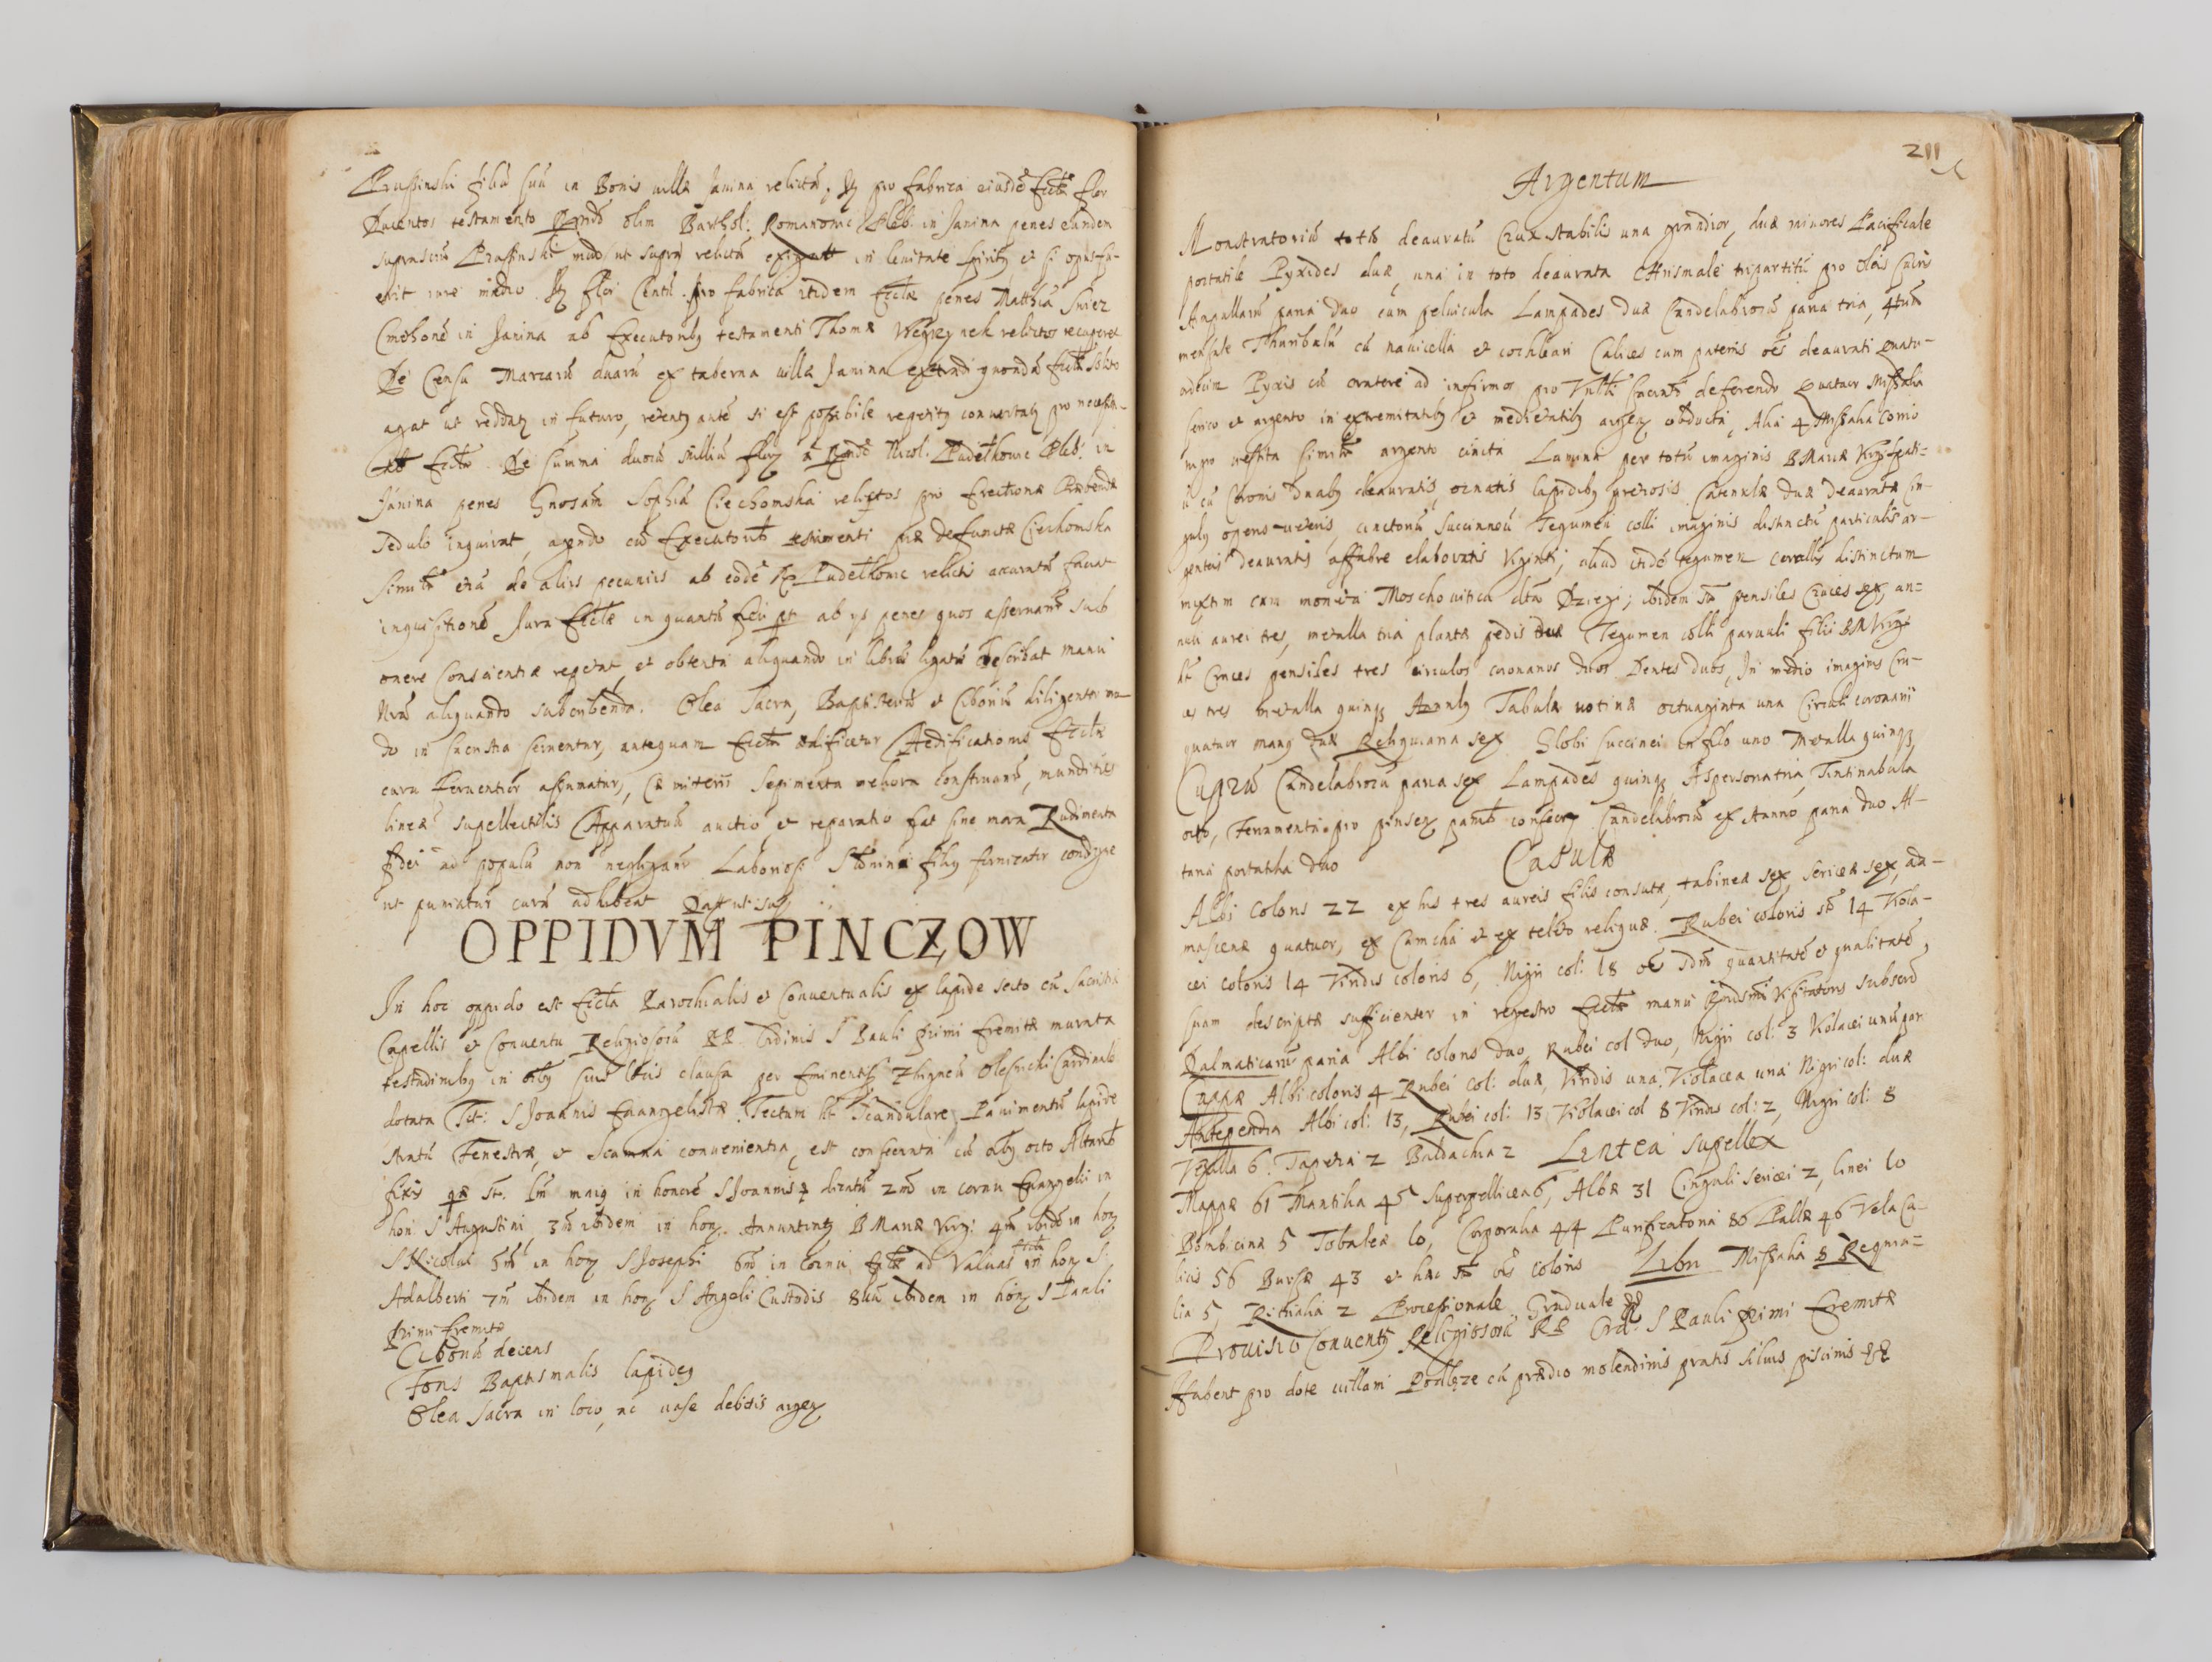 Prussinski filiū suū in Bonis villæ Janina relictū. Itq pro fabrica eiusdē Eccłæ flor
Ducentos testamento Rndi olim Barthol: Romanowic Pleb. in Janina penes eundem
suprascriū Prussinski mod ut supra relictū exigat in lenitate spirits et si opus fu-
erit iure medio. Itq flor Centū pro fabrica itidem Eccłæ penes Matthiā
Cmethonē in Janina ab Executoribq testamenti Thomæ Wegrzynek relictos recuperet
De Censu Marcarū duarū ex taberna villæ Janina quondā Eccłæ
agat ut reddatq in futuro, si est possibile convertatq pro necessit-
Eccłæ. De summa duorū millium flor à Rndo Nicol. Pudełkowic Pleb: in
Janina penes Gnosam Sophiā Ciechomska relictos pro Erectione Præbendæ
sedulo inquirat, agendo cū Executorib testamenti præ defunctæ Ciechomska
Simił etiā de aliis pecuniis ab eodē R Pudełkowic relictis accuratā faciat
inquisitionē Jura Eccłæ in quantū fieri pt ab ijs penes quos asservant sub
onere Conscientiæ repetat, et obtenta aliquando in librū ligatū describat manu
Nrā aliquando subscribenda. Olea Sacra, Baptisteriū et Ciboriū diligenter mo-
do in Sacristia serventur, antequam Eccła ædificetur Aedificationis Eccłæ
cura ferventior assumatur, Cæmiterii Sepimenta meliora construant, mundities
lineæ supellectilis Apparatuū auctio et reparatio fiat sine mora Rudimenta
fidei ad populū non negligant Laboriosi Słonina filiq fornicator condigne
ut puniatur curā adhibeat
OPPIDVM PINCZOW
In hoc oppido est Eccła Parochialis et Conventualis ex lapide secto cū Sacristia
Capellis et Conventu Religiosorū RR Ordinis S Pauli Primi Eremitæ murata
testudinibq in oibq suis locis clausa per Eminentiss Zbigneū Olesnicki Cardinalē
dotata Tit: S Joannis Euangelistæ. Tectum Scandulare, Pavimentū lapide
stratū Fenestræ, et Scamna convenientia, est consecrata cū oibq octo Altarib
fixis quæ st. Imū maiq in honorē S Joannis dicatū 2m in cornu Euangelii in
hon. S Augustini, 3m ibidem in hoq. Annuntiatq B Mariæ Virg: 4m ibidē in hoq
S Nicolai 5m in hoq S Josephi 6m in cornu ad Valvas Eccłæ in hoq S.
Adalberti 7m ibidem in hoq S Angeli Custodis 8uū ibidem in hoq S Pauli
Primi Eremitæ
Ciboriū decens
Fons Baptismalis lapideq
Olea Sacra in loco, ac vase debitis argeq
211
Argentum
Monstratoriū totū deauratū Crux stabilis una grandior, duæ minores Pacificale
portatile Pyxides duæ, una in toto deaurata Chrismale tripartitū pro oleis sacris
Ampullarū paria duo cum pelvicula Lampades duæ Candelabrorū paria tria, 4tum
mensale Thuribulū cū navicella et cochleari Calices cum patenis oēs deaurati quatu-
ordecim Pyxis cū cratere ad infirmos pro deferendo Quatuor Missalia
serico et argento in extremitatibq et medietatibq argeq obducta, Alia 4 Missalia corio
nigro vestita simił argento cincta Lamina per totū imaginis B Mariæ Virg
cū Coronis duabq deauratis, ornatis lapidibq preciosis Catenulæ duæ deauratæ Cin-
gulq succineū Tegumen colli imaginis distinctū particulis ar-
genteis deauratis affabre elaboratis Viginti; aliud itidē tegumen corallis distinctum
mixtim cum moneta Moschovitica Dziegi; ibidem st pensiles Cruces sex, an-
nuli aurei tres, metalla tria plantæ pedis duæ Tegumen colli parvuli filii BM Virg
Cruces pensiles tres circulos coronarios duos Dentes duos, In medio imaginis Cru-
ces tres metalla quinq Annulq Tabulæ votivæ octuaginta una Circuli coronarii
quatuor manq duæ Reliquiaria sex Globi succinei in filo uno Metalla quinq
Cuprū Candelabrorū paria sex Lampades quinq Aspersoria tria, Tintinabula
octo, Ferramenta pro pinseq panib consecrq Candelabrorū ex stanno paria duo Al-
taria portatilia duo Casulæ
Albi Coloris 22 ex his tres aureis filis consutæ, tabineæ sex, sericeæ sex, ada-
mascenæ quatuor, ex Camcha et ex teleto reliquæ. Rubei coloris st 14 Viola-
cei coloris 14 Viridis coloris 6, Nigri col: 18 quantitatē et qualitatē,
suam descriptæ sufficienter in regestro Eccłæ manu Rndsmi Visitatoris subscrō
Dalmaticarū paria Albi coloris duo, Rubei col duo, Nigri col: 3 Violacei unū par
Cappæ Albi coloris 4 Rubei col: duæ, Viridis una, Violacea una Nigri col: duæ
Antependia Albi col: 13, Rubei col: 13 Violacei col 8 Viridis col: 2, Nigri col: 8
Vexilla 6. Tapetia 2 Baldachia 2 Lintea supellex
Mappæ 61 Mantilia 45 Superpellicea 6, Albæ 31 Cinguli sericei 2, linei 10
Bombicinæ 5 Tobaleæ 10, Corporalia 44 Purificatoria 86 Pallæ 46 Vela Ca-
licis 56 Bursæ 43 et hæc st oīs coloris Libri Missalia 8 Requia-
lia 5, Ritualia 2 Processionale Graduale
Provisio Conventq Religiosorū RR Ord: S Pauli Primi Eremitæ
Habent pro dote villam Podłęze cū prædio molendinis pratis silvis piscinis